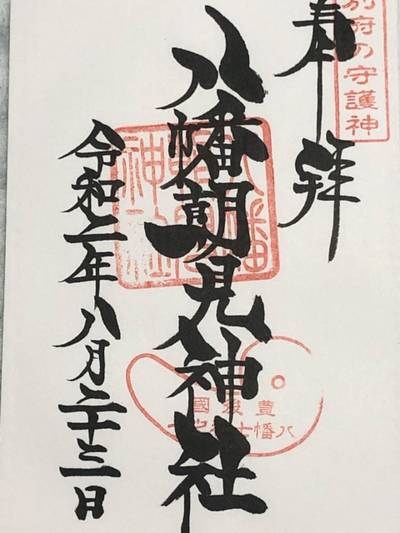 別府の守護神
奉拝
八幡朝見神社
令和二年八月二十三日
豊後國